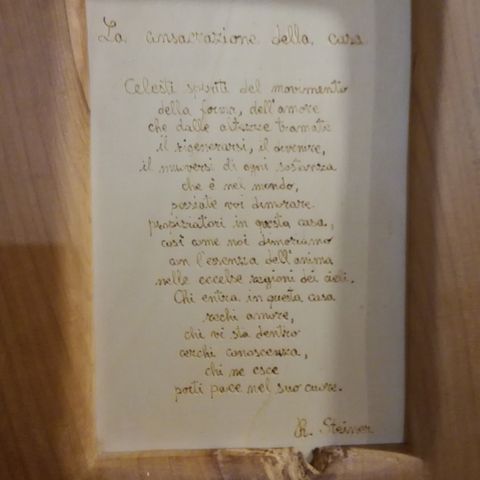 La consacrazione della casa
Celesti spiriti del movimento
della forma, dell'amore
che dalle altezze tramate
il rigenerarsi, il divenire,
il muoversi di ogni sostanza
che è nel mondo,
possiate voi dimorare
propiziatori in questa casa,
così come noi dimoriamo
con l'essenza dell'anima
nelle eccelse regioni dei cieli.
Chi entra in questa casa
rechi amore,
chi vi sta dentro
cerchi conoscenza,
chi ne esce
porti pace nel suo cuore.
R. Steiner